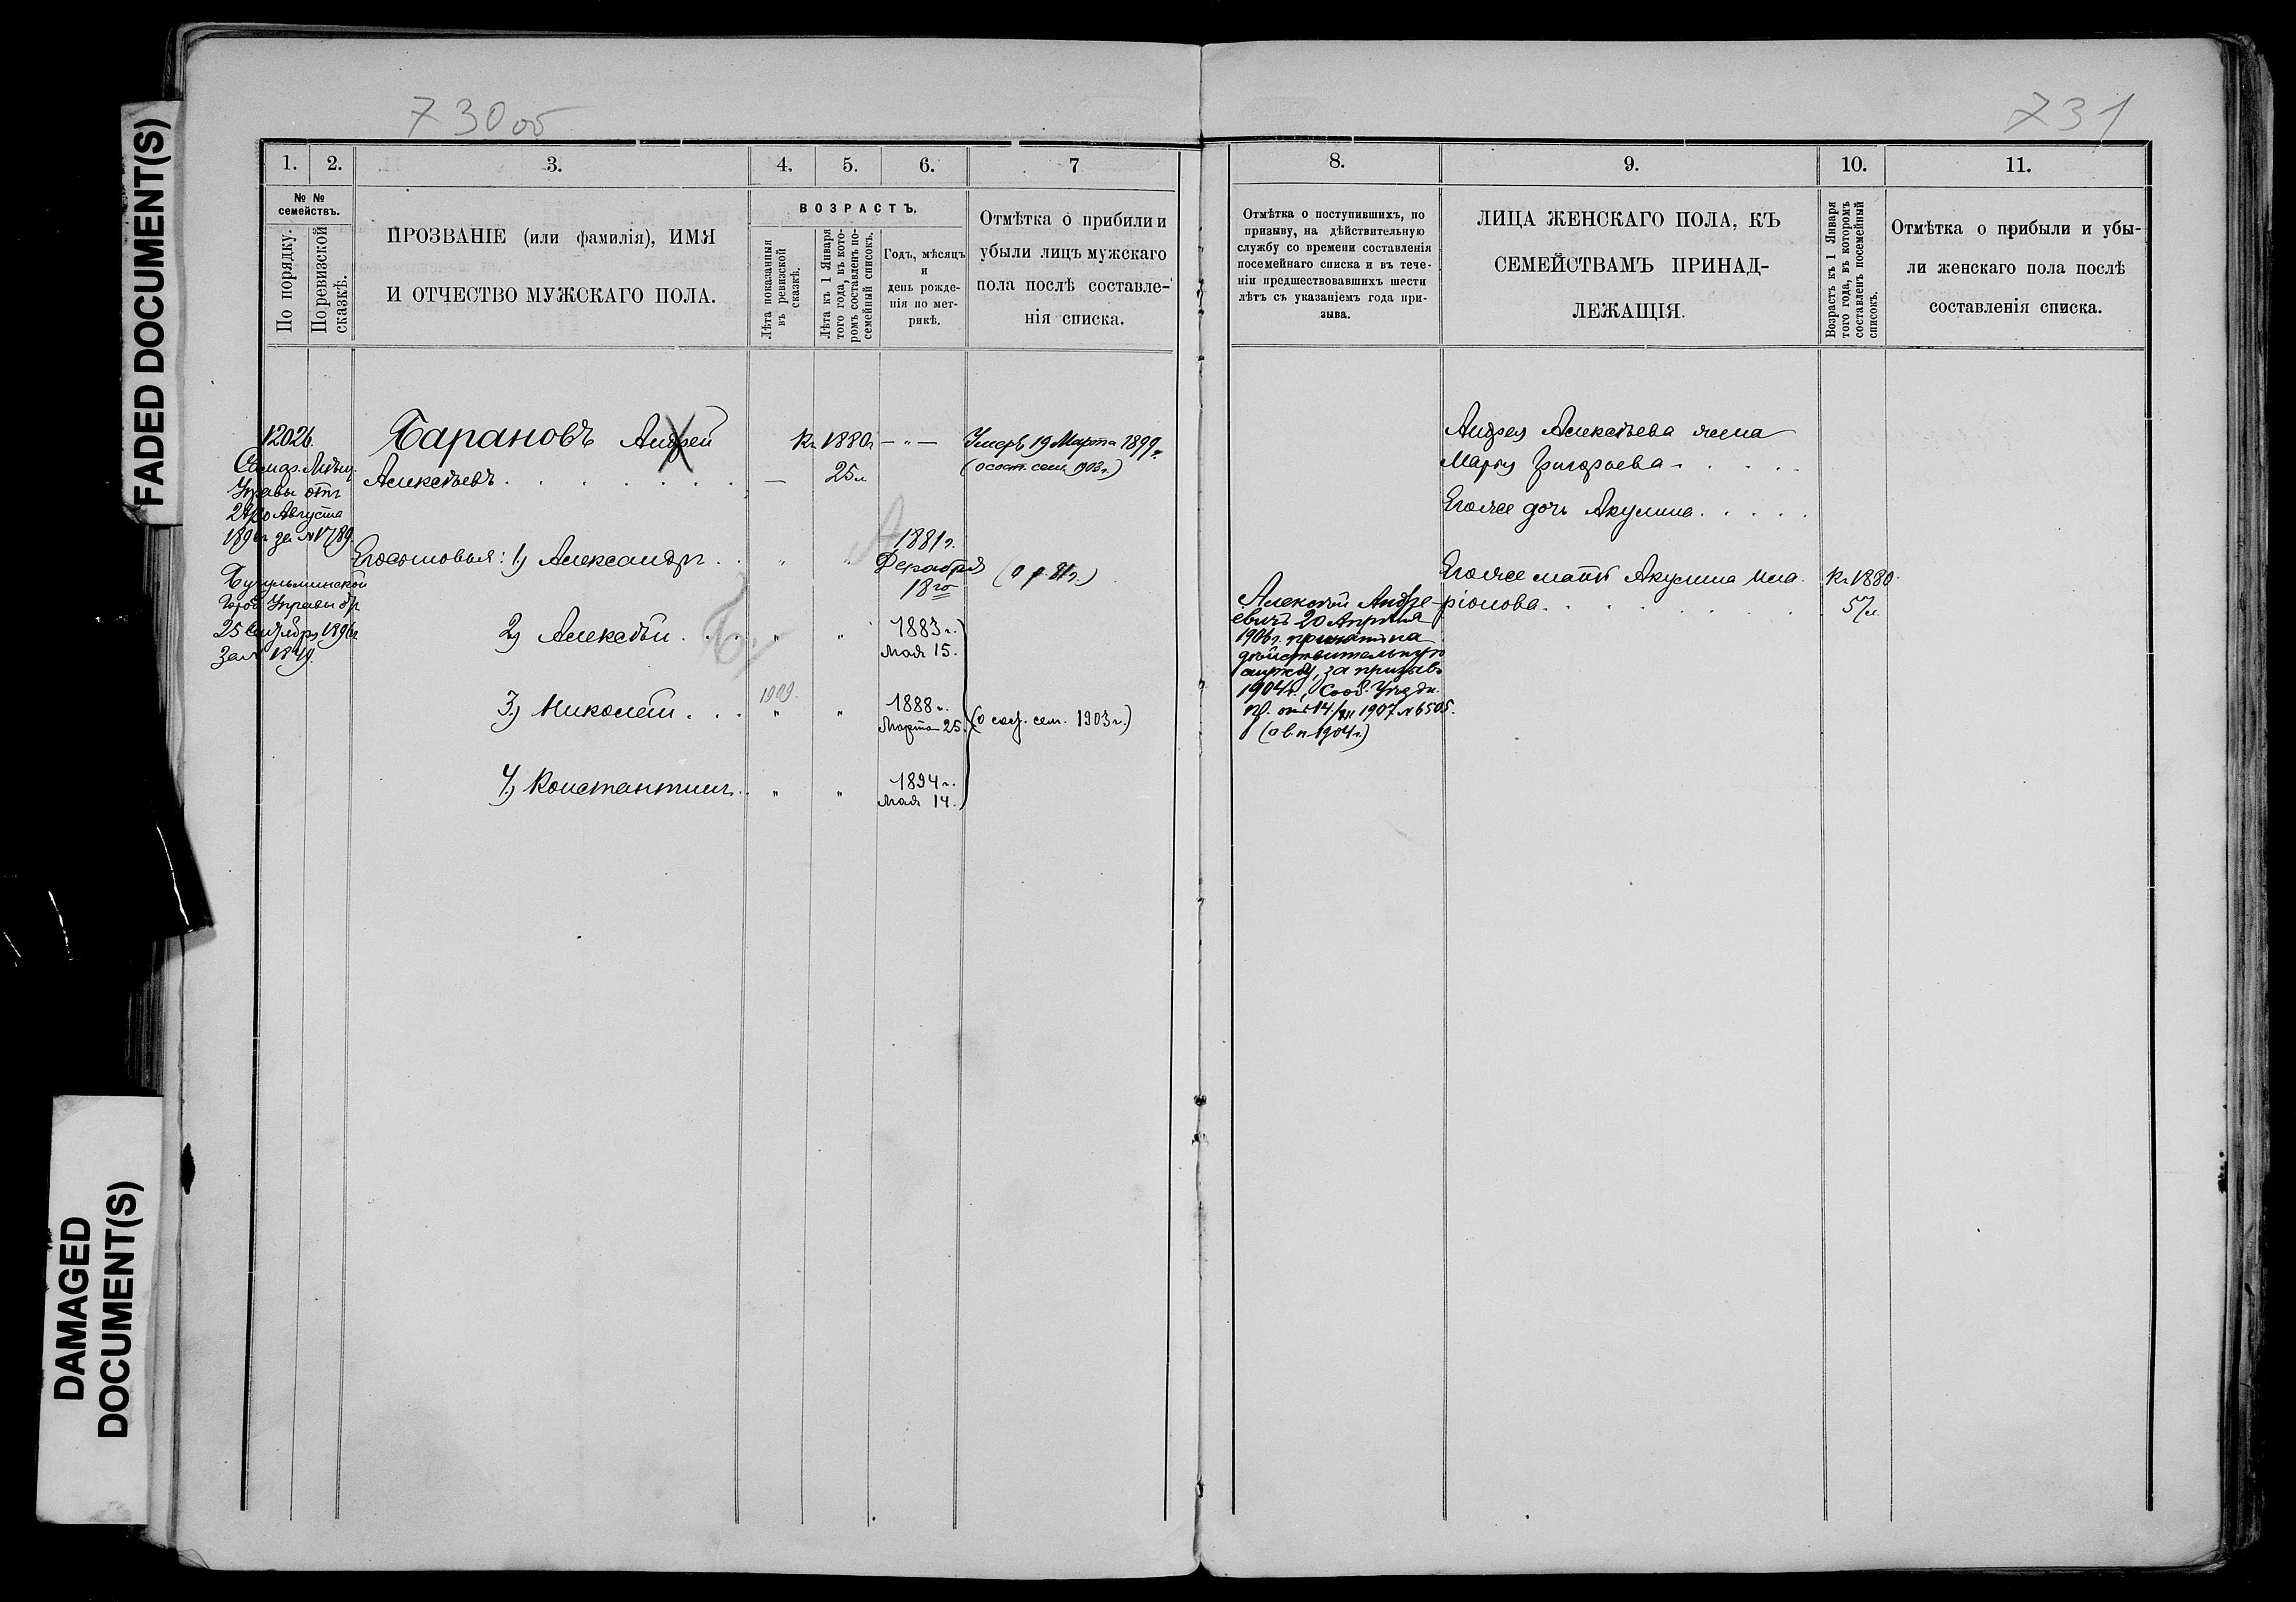 FADED DOCUMENT(S)
DAMAGED
DOCUMENT(S)
730 об
731
1.
2.
3.
4.
5.
6.
7
№ №
семействъ.
По порядку.
По ревизской
сказкѣ.
ПРОЗВАНІЕ (или фамилія), ИМЯ
И ОТЧЕСТВО МУЖСКАГО ПОЛА.
ВОЗРАСТЪ.
Лѣта показанныя
въ ревизской
сказкѣ.
Лѣта къ 1 Января
того года, въ кото-
ромъ составленъ по-
семейный списокъ.
Годъ, мѣсяцъ
и
день рожде-
нія по мет-
рикѣ.
Отмѣтка о прибыли и
убыли лицъ мужскаго
пола послѣ составле-
нія списка.
12026.
Управы отъ
Августа
Бугульминской
Город. Управы
25 Сентября 1896г.
за № 1849.
Барановъ Андрей
Алексѣевъ
—
Къ 1880г
25л
— " —
Умеръ 19 Марта 1899г.
Его сыновья: 1) Александръ
" "
1881г.
Февраля
18го
2) Алексѣй
" "
1883г.
Мая 15.
3) Николай
1909.
" "
1888г.
Марта 25.
1903г.)
4) Константинъ
" "
1894г.
Мая 14.
8.
9.
10.
11.
Отмѣтка о поступившихъ, по
призыву, на дѣйствительную
службу со времени составленія
посемейнаго списка и въ тече-
ніи предшествовавшихъ шести
лѣтъ съ указаніемъ года при-
зыва.
ЛИЦА ЖЕНСКАГО ПОЛА, КЪ
СЕМЕЙСТВАМЪ ПРИНАД-
ЛЕЖАЩІЯ.
Возрастъ къ 1 Января
того года, въ которомъ
составленъ посемейный
списокъ.
Отмѣтка о прибыли и убы-
ли женскаго пола послѣ
составленія списка.
Андрея Алексѣева жена
Марья Григорьева
Его же дочь Акулина
Его же мать Акулина Ила-
ріонова
Къ 1880
57л.
Алексѣй Андре-
евичъ 20 Апрѣля
1906г. принятъ на
дѣйствительную
службу, за призывъ
1904г., Сооб. Уѣздн.
1907 № 6505.
1904г.)